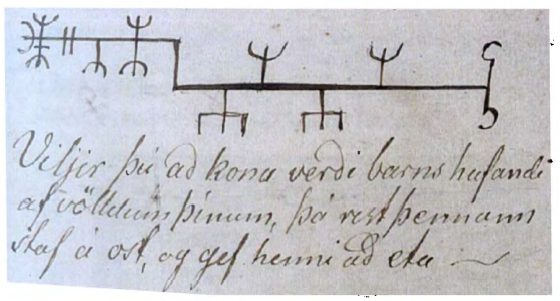 Viljir þú ad kona verdi barns hafandi
af völldum þínum, þá rist þennann
staf á ost, og gef henni ad eta